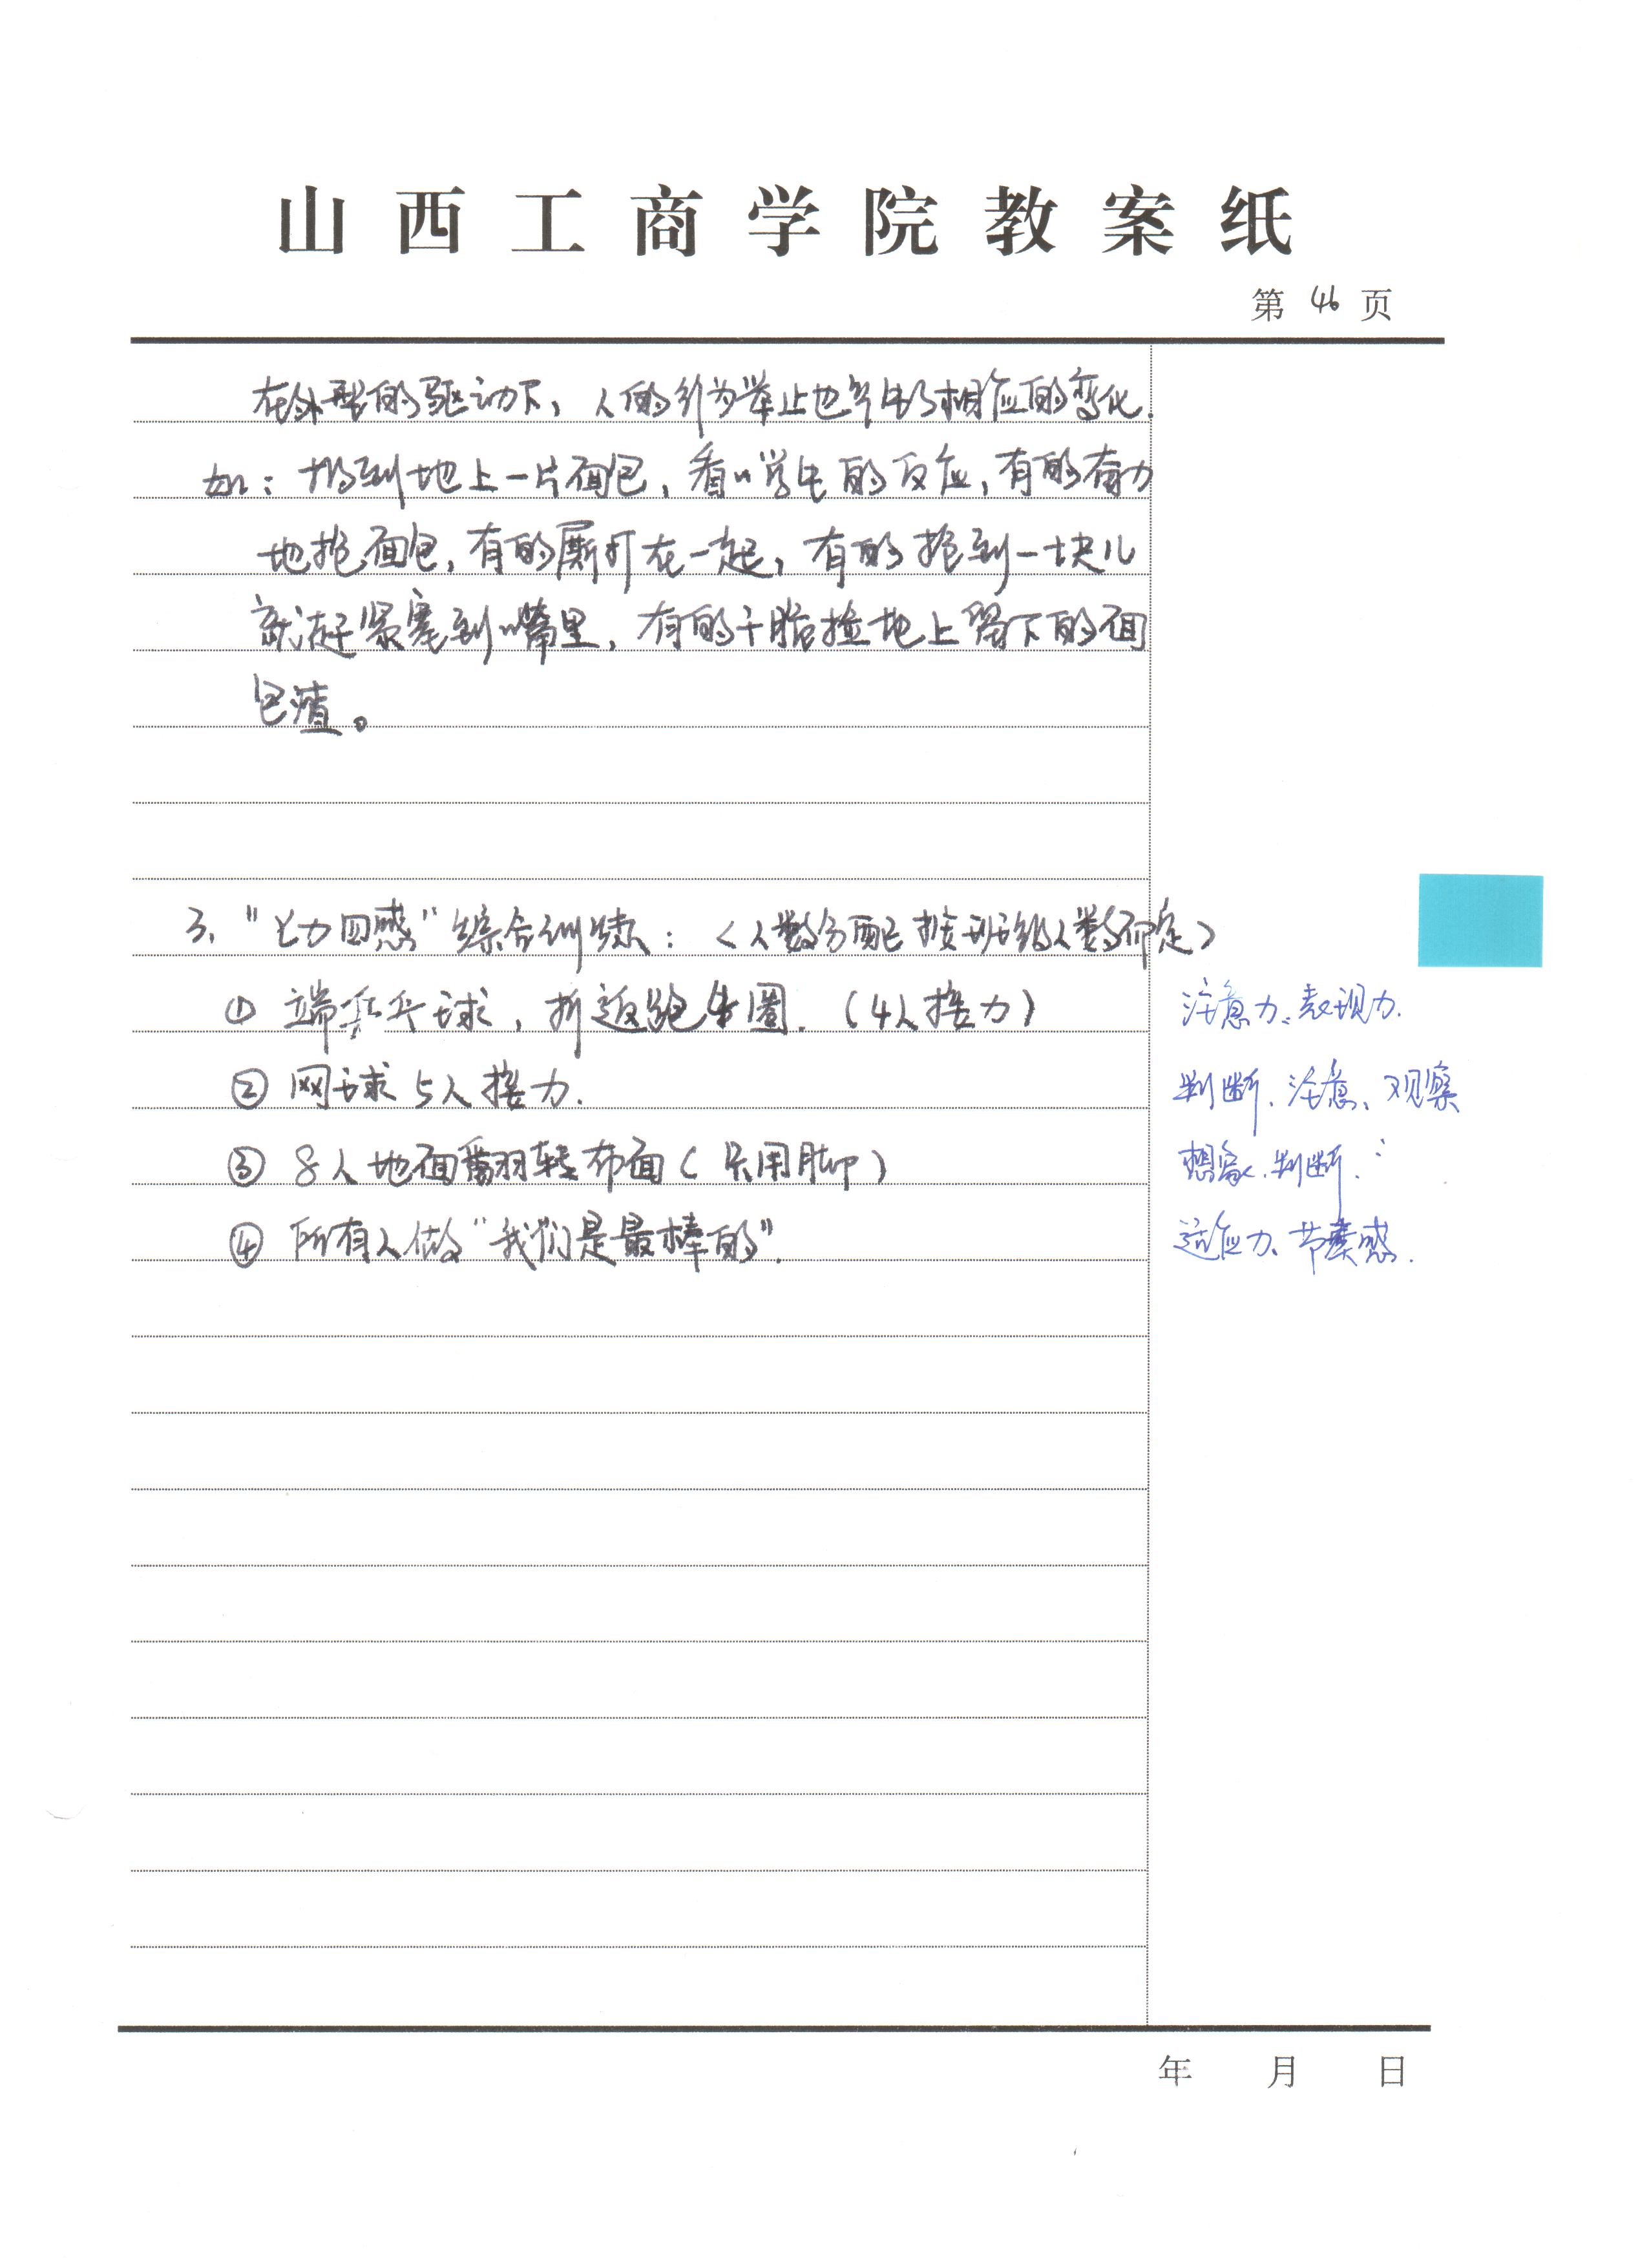 山西工商学院教案纸
第 46 页
在外型的驱动下，人的行为举止也产生了相应的变化.
如：扔到地上一片面包，看学生的反应，有的奋力
地抢面包，有的厮打在一起，有的抢到一块儿
就赶紧塞到嘴里，有的干脆捡地上留下的面
包渣。
3、"七力四感"综合训练：〈人数分配按班级人数而定〉
① 端乒乓球，折返绕圈.（4人接力）
注意力、表现力.
② 网球5人接力.
判断、注意、观察
③ 8人地面翻转布面（只用脚）
想象、判断.
④ 所有人做"我们是最棒的".
适应力、节奏感.
年 月 日